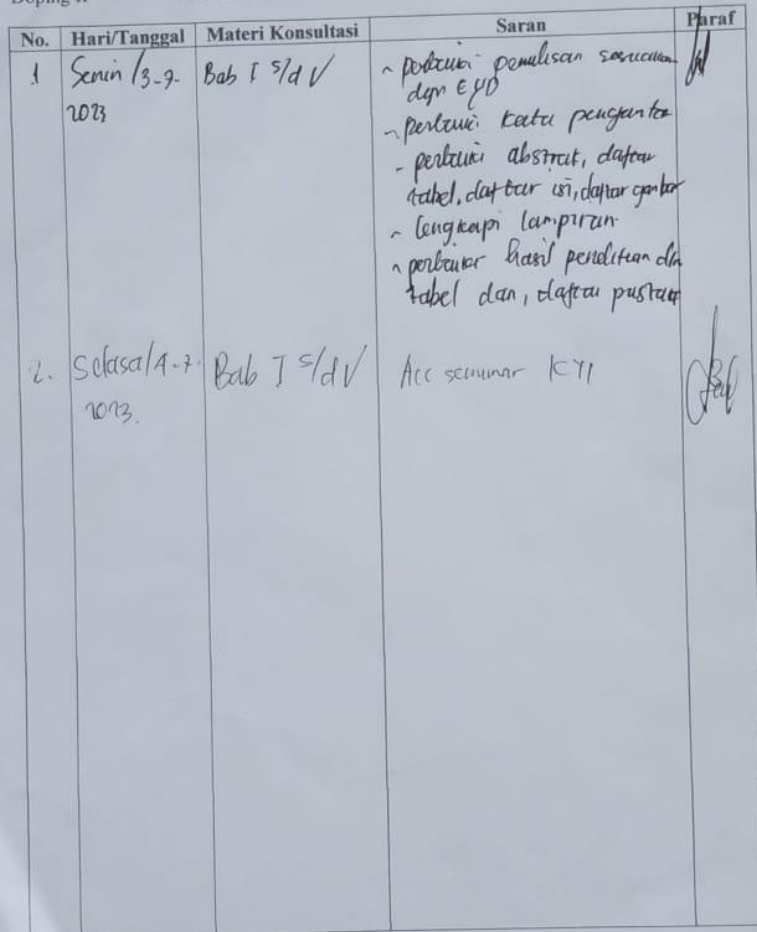 Doping II
No. Hari/Tanggal Materi Konsultasi Saran Paraf
1 Senin /3-7- Bab I s/d V - perbaiki penulisan sesuaikan
2023 dgn EYD
- perbaiki kata pengantar
- perbaiki abstrak, daftar
tabel, daftar isi, daftar gambar
- lengkapi lampiran
- perbaiki hasil penelitian dlm
tabel dan, daftar pustaka
2. Selasa/4-7- Bab I s/d V Acc seminar KTI
2023.